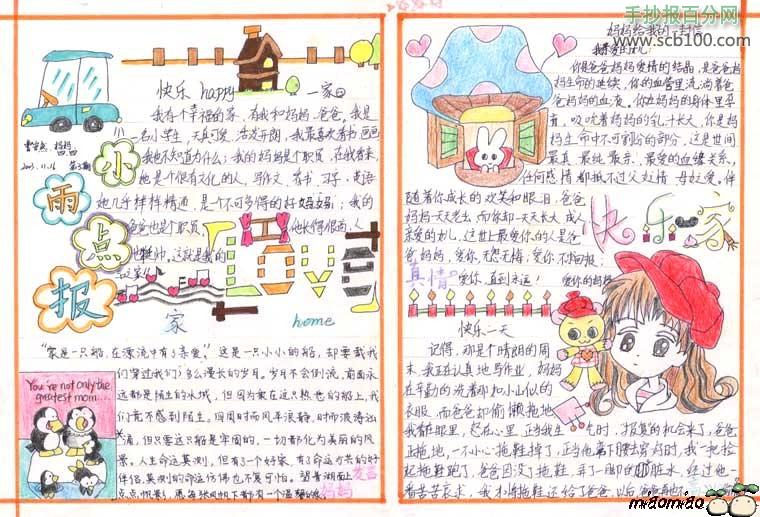 手抄报百分网
www.scb100.com
快乐 happy 一家
我有个幸福的家,有我和妈妈、爸爸。我是
一名小学生,天真可爱,活泼开朗,我最喜欢看书、画画
我也不知道为什么;我的妈妈是个职员,在我看来,
她是个很有文化的人,写作文、看书、习字、英语
她几乎样样精通,是个不可多得的好妈妈;我的
爸爸也是个职员,他长得很高,人
也挺帅,这就是我的
小雨点报
第3期
LOVE
家 home
"家是一只船,在漂流中有了亲爱。"这是一只小小的船,却要载我
们穿过我们多么漫长的岁月。岁月不会倒流,前面永
远都是陌生的水域,但因为乘在这只熟悉的船上,我
们竟不感到陌生。四周时而风平浪静,时而波涛汹
涌,但只要这只船是牢固的,一切都化为美丽的风
景。人生命运莫测,但有了一个好家,有了命运与共的好
伴侣,莫测的命运仿佛也不复可怕。望着湖面上
点点帆影,愿每张风帆下都有一个温馨的家。
You're not only the
greatest mom....
妈妈给我的一封信
你是爸爸妈妈爱情的结晶,是爸爸妈
妈生命的延续,你的血管里流淌着爸
爸妈妈的血液,你在妈妈的身体里孕
育,吸吮着妈妈的乳汁长大,你是妈
妈生命中不可割分的部分,这是世间
最真、最纯、最亲、最爱的血缘关系,
任何感情都抵不过父女情、母女爱,伴
随着你成长的欢笑和眼泪,爸爸
妈妈一天天老去,而你却一天天长大成人
亲爱的女儿,这世上最爱你的人是爸
爸妈妈,爱你,无怨无悔;爱你,不图回报;
爱你,直到永远! 爱你的妈妈
真情
快乐一家
快乐一天
记得,那是个晴朗的周
末,我正在认真地写作业,妈妈
在辛勤的洗着那和小山似的
衣服,而爸爸却偷懒拖地
我都在眼里,怒在心里,正当我生气时,报复的机会来了,爸爸
正拖地,一不小心拖鞋掉了,正当他弯下腰去穿时,我一把捡
起拖鞋跑了,爸爸因没了拖鞋,弄了一脚的脏水,经过他一
番苦苦哀求,我才将拖鞋还给了爸爸,以后爸爸再也不
miaomiao